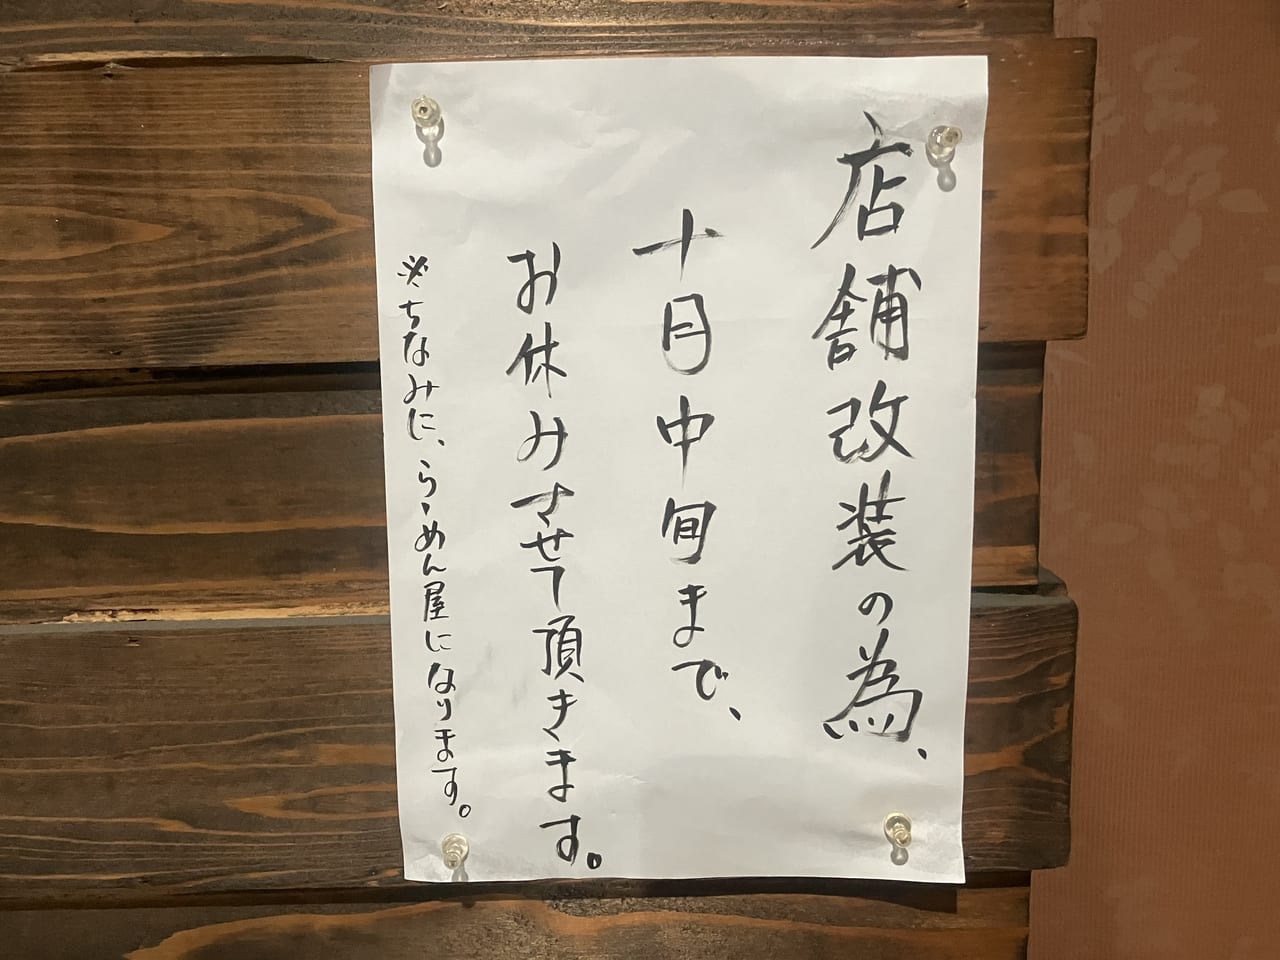 店舗改装の為、
十月中旬まで、
お休みさせて頂きます。
※ちなみに、らーめん屋になります。